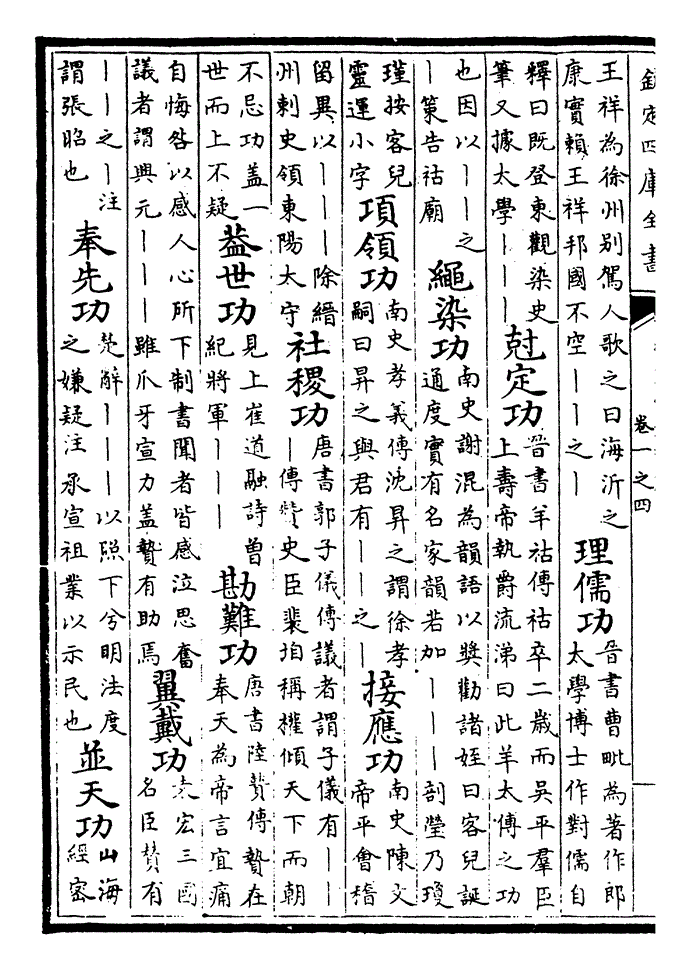 欽定四庫全書
卷一之四
王祥為徐州別駕人歌之曰海沂之
康實賴王祥邦國不空丨丨之丨
理儒功
晉書曹毗為著作郎
太學博士作對儒自
釋曰既登東觀染史
筆又據太學丨丨丨
尅定功
晉書羊祜傳祜卒二歲而吳平羣臣
上壽帝執爵流涕曰此羊太傅之功
也因以丨丨之
丨策告祜廟
繩染功
南史謝混為韻語以奬勸諸姪曰客兒誕
通度實有名家韻若加丨丨丨剖瑩乃瓊
瑾按客兒
靈運小字
項領功
南史孝義傳沈昇之謂徐孝
嗣曰昇之與君有丨丨之丨
接應功
南史陳文
帝平會稽
留異以丨丨丨除縉
州刺史領東陽太守
社稷功
唐書郭子儀傳議者謂子儀有丨丨
丨傳贊史臣裴垍稱權傾天下而朝
不忌功蓋一
世而上不疑
蓋世功
見上崔道融詩曾
紀將軍丨丨丨
勘難功
唐書陸贄傳贄在
奉天為帝言宜痛
自悔咎以感人心所下制書聞者皆感泣思奮
議者謂興元丨丨丨雖爪牙宣力蓋贄有助焉
翼戴功
袁宏三國
名臣贊有
丨丨之丨注
謂張昭也
奉先功
楚辭丨丨丨以照下兮明法度
之嫌疑注承宣祖業以示民也
並天功
山海
經密